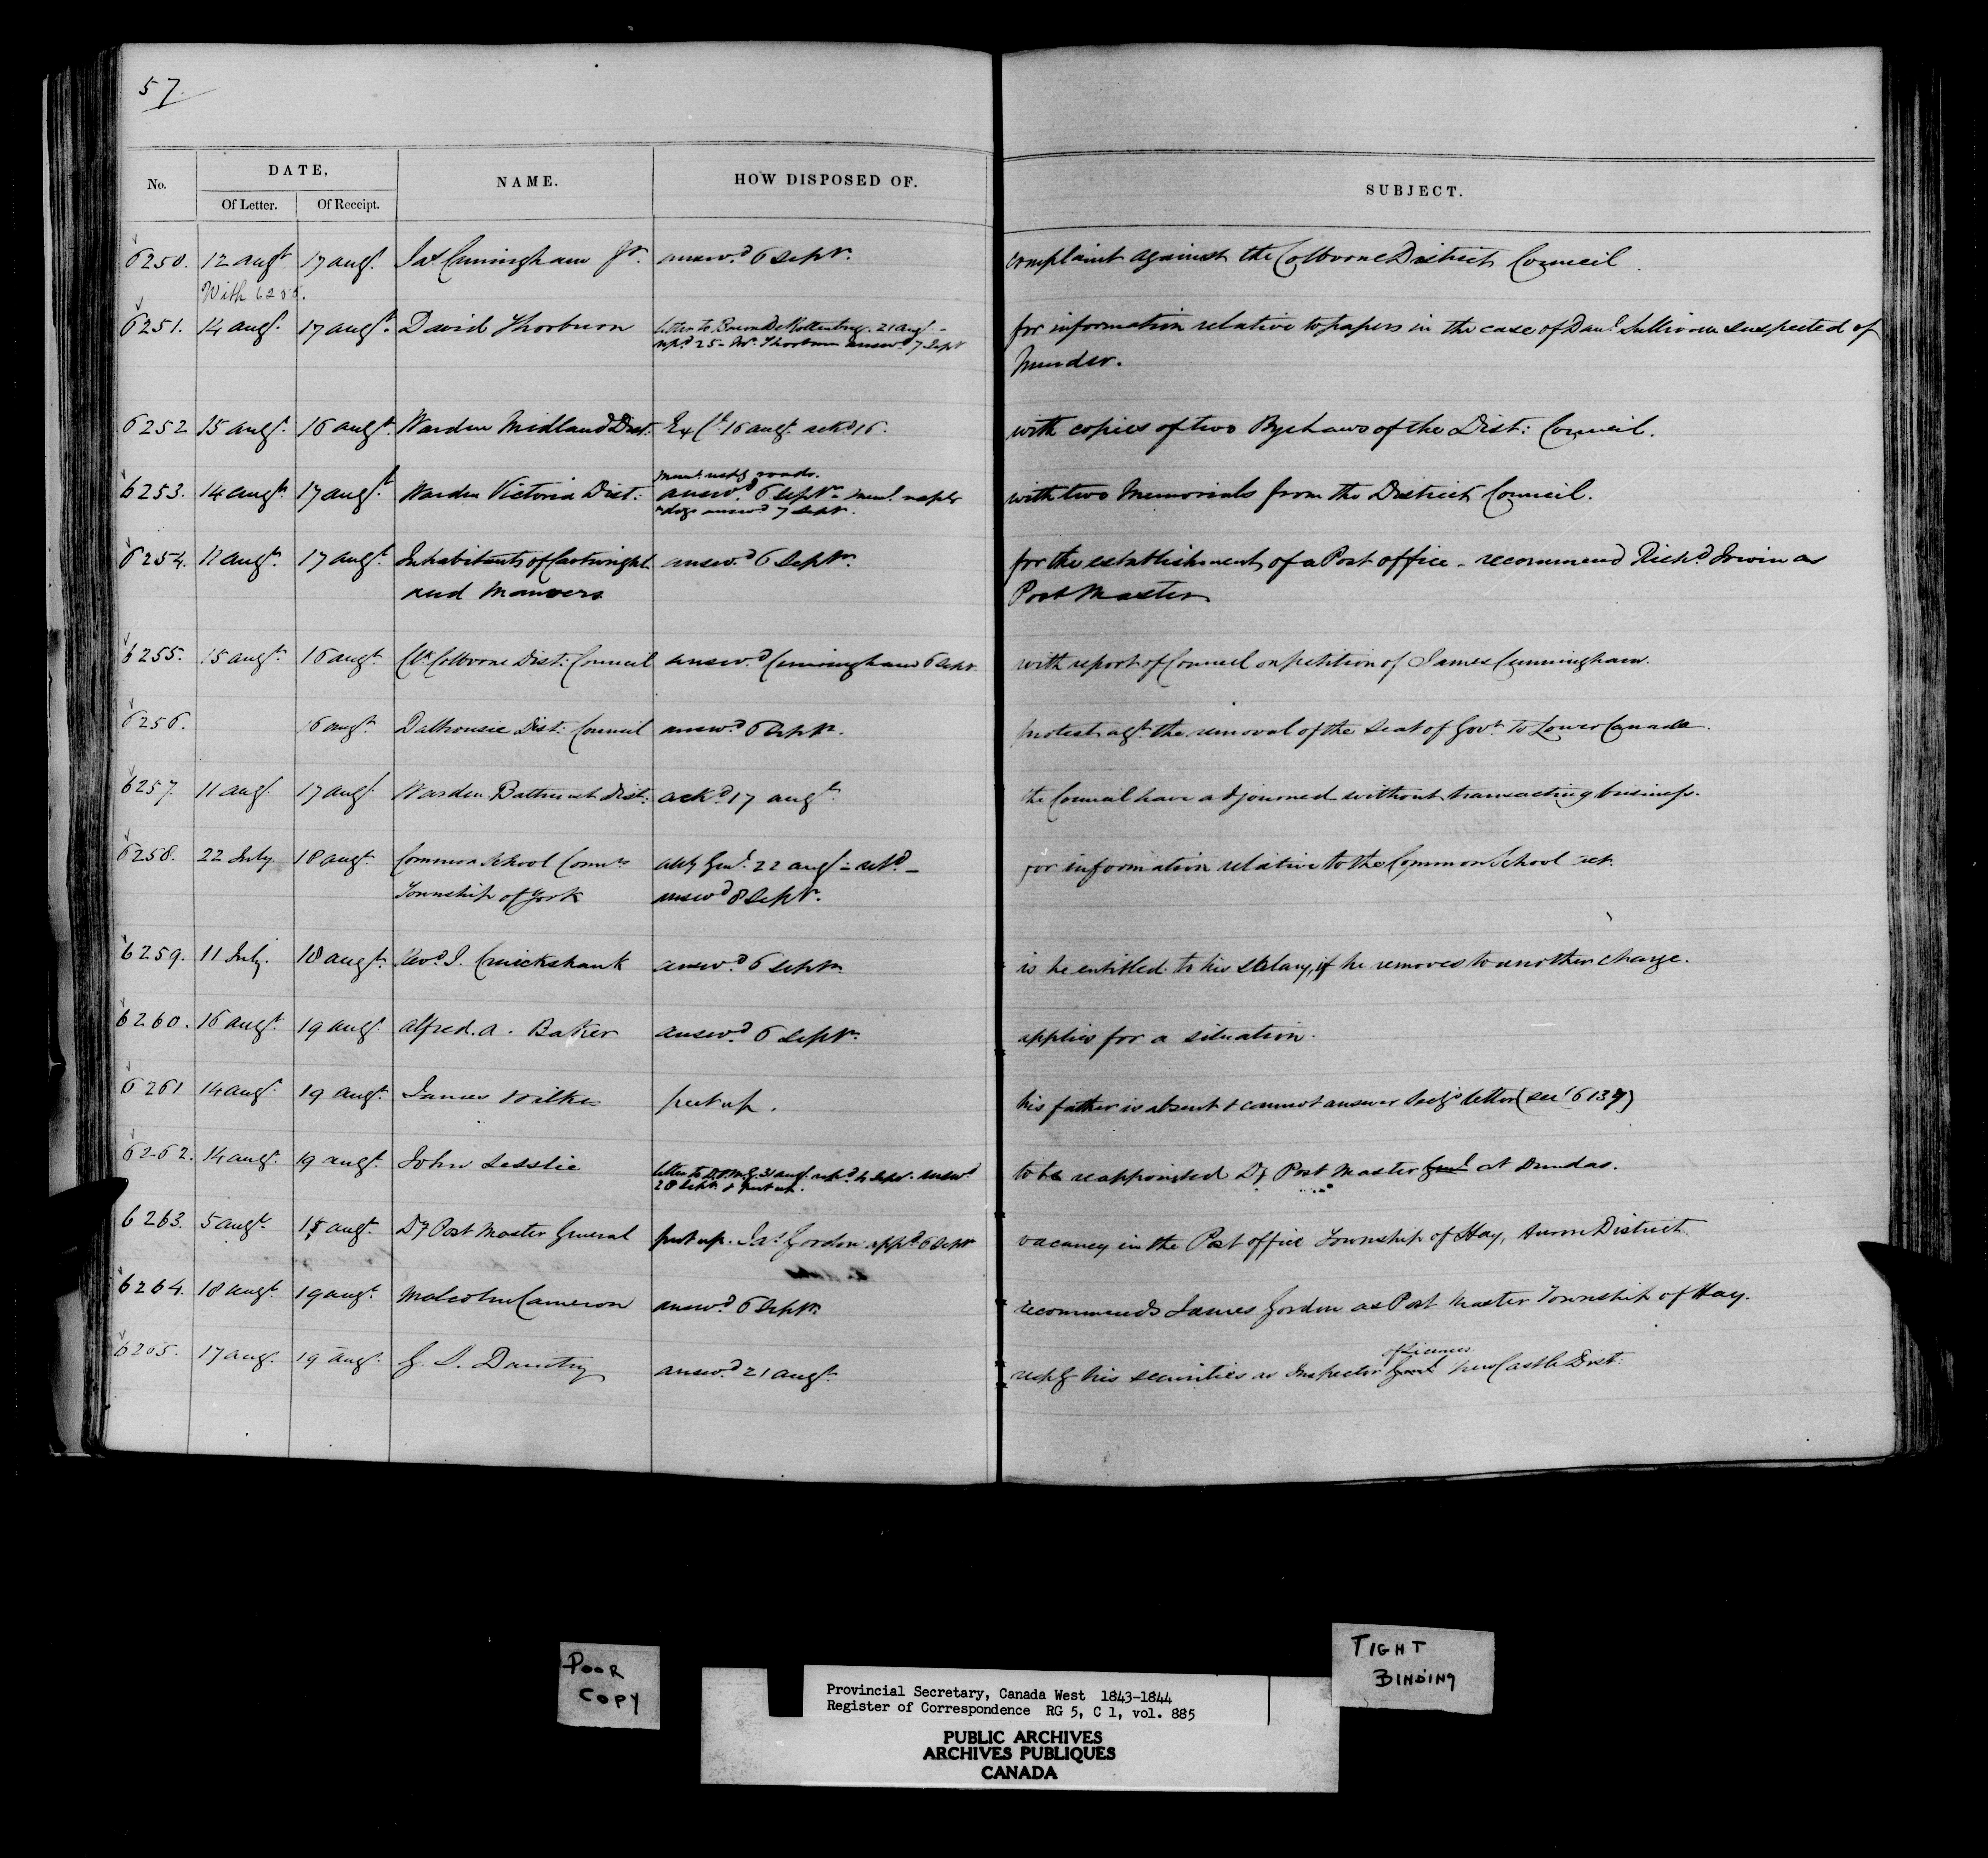 57.
No. DATE, NAME. HOW DISPOSED OF. SUBJECT.
Of Letter. Of Receipt.
6250. 12 augt 17 augt. Jas Cunningham Jr. answd. 6 Septr. complaint against the Colborne District Council.
With 6255.
6251. 14 augt. 17 augt. David Thorburn letter to Baron De Rottenburg. 21 augt. – for information relative to papers in the case of Danl. Sullivan suspected of
repd 25 – Mr. Thorburn answd. 7 Septr Murder.
6252 15 augt. 16 augt. Warden Midland Dist. Ex Cl. 16 augt. ackd. 16. with copies of two Bye Laws of the Dist: Council.
meml. respg roads.
6253. 14 augt. 17 augt. Warden Victoria Dist: answd. 6 Septr – meml. respg with two Memorials from the District Council.
answd 7 Septr.
6254. 11 augt. 17 augt. Inhabitants of Cartwright answd. 6 Septr. for the establishment of a Post office – recommend Richd. Irwin as
and Manvers Post Master
6255. 15 augt. 16 augt. Clk. Colborne Dist: Council answd. Cunningham 6 Septr. with report of Council on petition of James Cunningham.
6256. 16 augt. Dalhousie Dist: Council answd. 6 Septr. protest agt. the removal of the Seat of Govt. to Lower Canada.
6257. 11 augt. 17 augt. Warden Bathurst Dist: ackd. 17 augt. the Council have adjourned without transacting business.
6258. 22 July 18 augt. Common School Comrs atty Genl. 22 augt – retd. – for information relative to the Common School act.
Township of York answd 8 Septr.
6259. 11 July. 18 augt. Revd. J. Cruickshank answd. 6 Septr. is he entitled to his salary, if he removes to another charge.
6260. 16 augt. 19 augt. Alfred. A. Baker answd. 6 Septr. applies for a situation.
6261 14 augt. 19 augt. James Wilkes put up. his father is absent & cannot answer letter (see 6139)
6262. 14 augt. 19 augt. John Lesslie letter to D.P.M.G. 31 augt. repd. 4 Septr. answd to be reappointed Dy Post Master Genl. at Dundas.
28 Septr. & put up.
6263. 5 augt. 15 augt. Dy Post Master General put up. Jas Gordon appd. 6 Septr vacancy in the Post office Township of Hay, Huron District.
6264. 18 augt. 19 augt. Malcolm Cameron answd 6 Septr. recommends James Gordon as Post Master Township of Hay.
of Licenses
6265. 17 augt. 19 augt. G. S. Daintry answd. 21 augt. respg his securities as Inspector Genl. NewCastle Dist:
POOR
COPY
TIGHT
BINDING
Provincial Secretary, Canada West 1843-1844
Register of Correspondence RG 5, C 1, vol. 885
PUBLIC ARCHIVES
ARCHIVES PUBLIQUES
CANADA